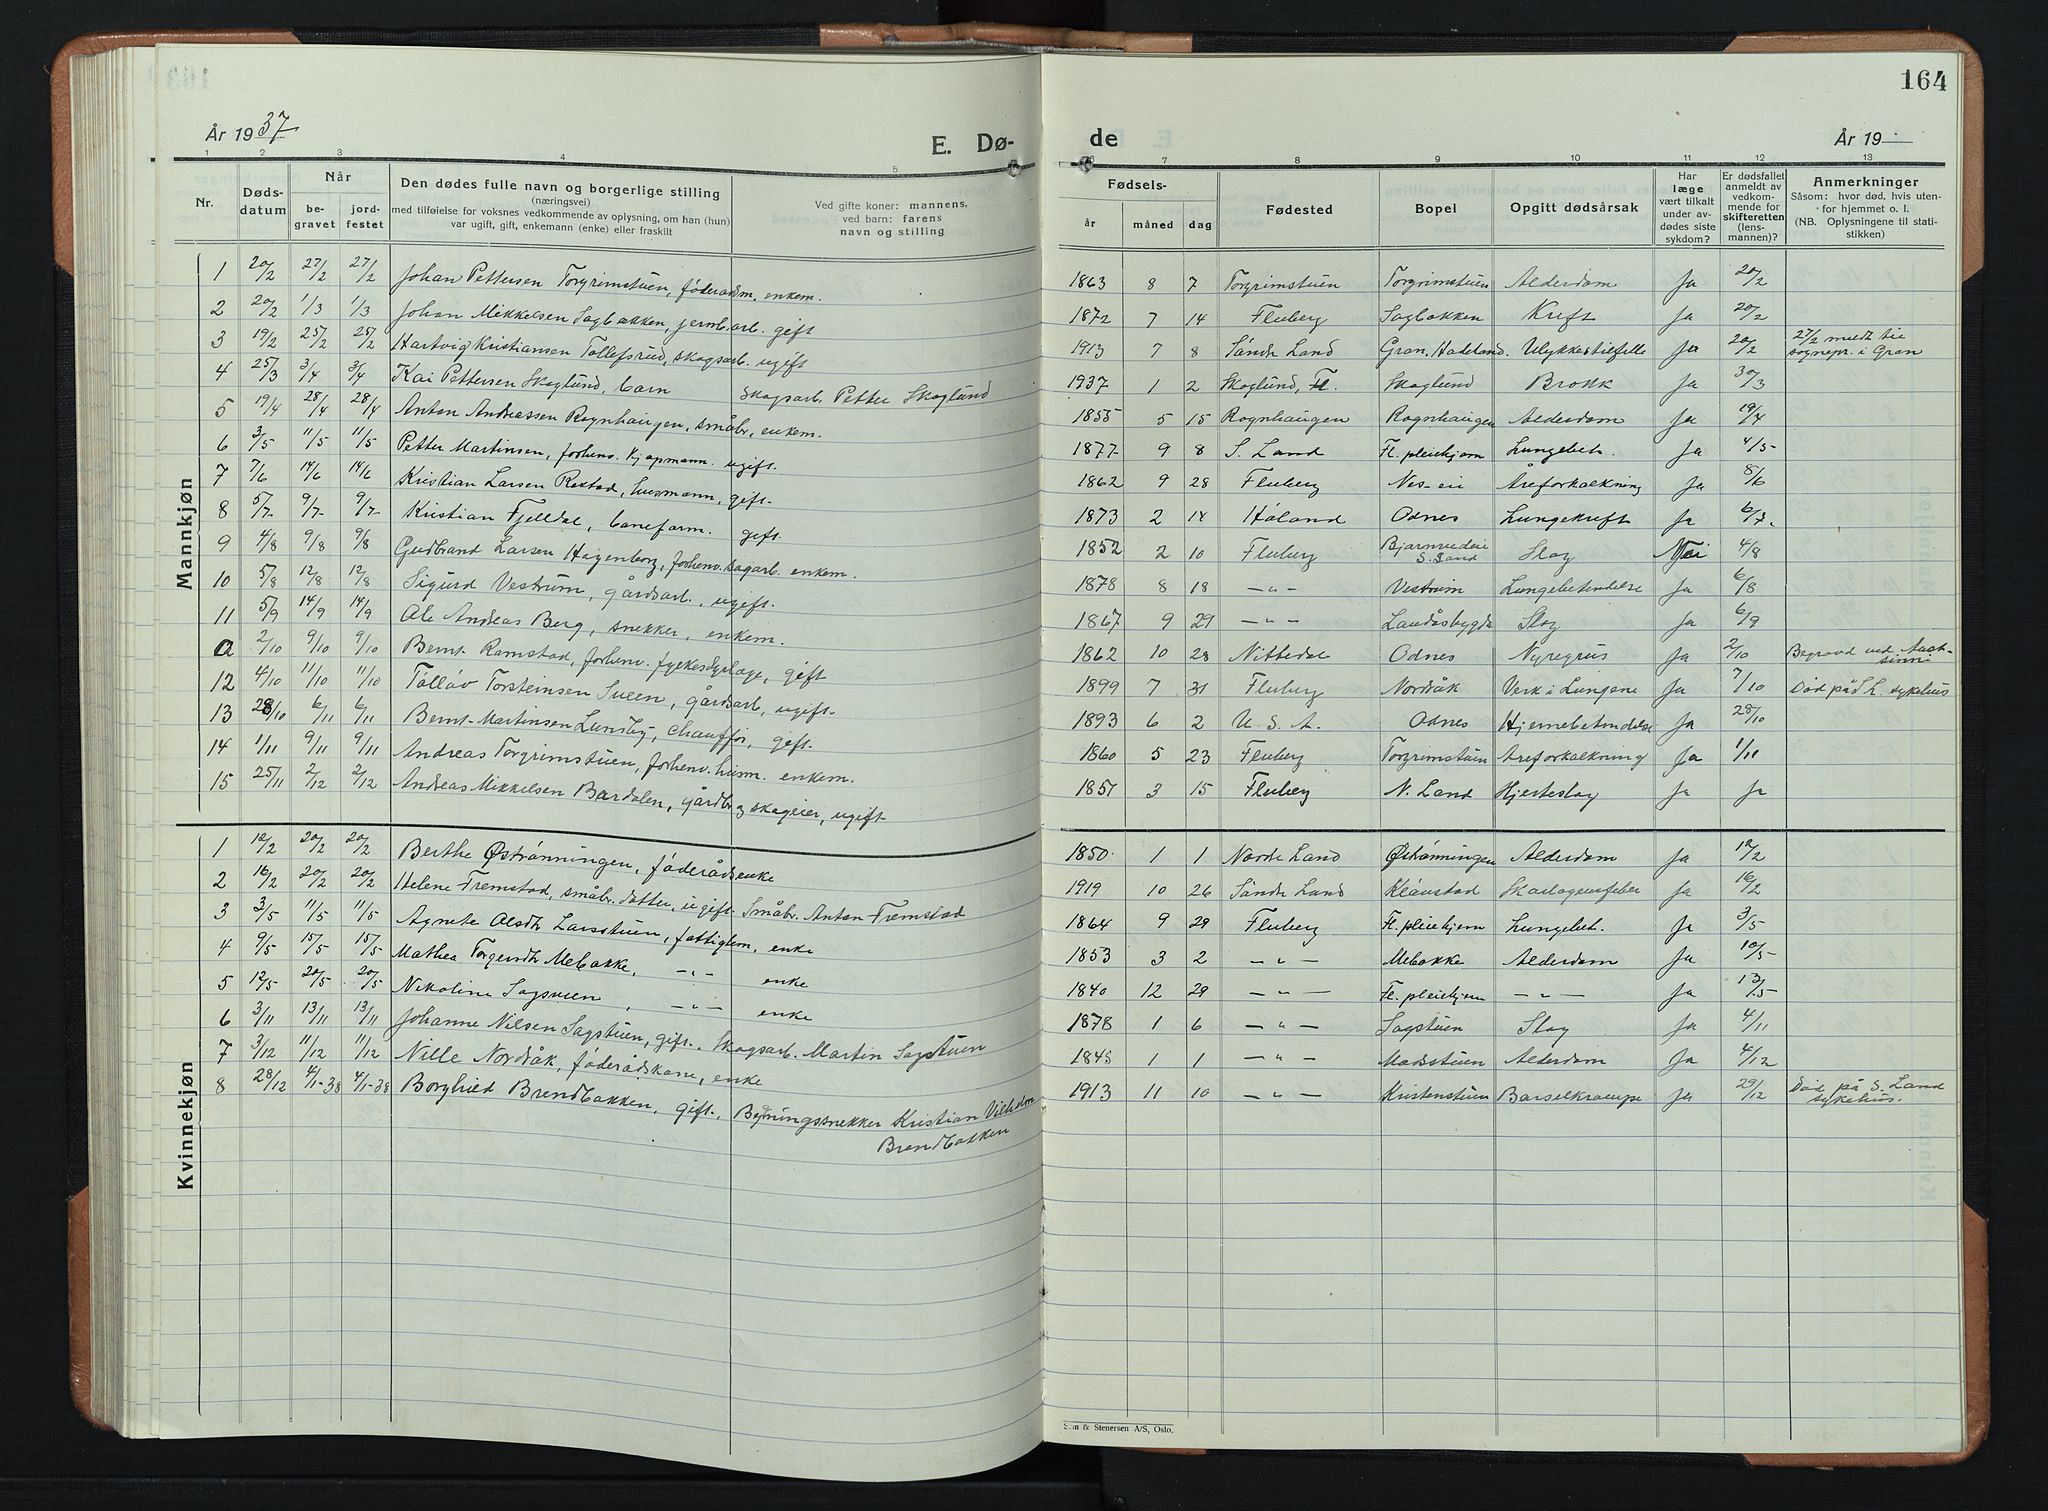 164
År 1937
E. Dø-
de
År 19
1 2 3 4 5
6 7 8 9 10 11 12 13
Nr.
Døds-
datum
Når
be-
gravet
jord-
festet
Den dødes fulle navn og borgerlige stilling
(næringsvei)
med tilføielse for voksnes vedkommende av oplysning, om han (hun)
var ugift, gift, enkemann (enke) eller fraskilt
Ved gifte koner: mannens,
ved barn: farens
navn og stilling
Fødsels-
år
måned
dag
Fødested
Bopel
Opgitt dødsårsak
Har
læge
vært tilkalt
under av-
dødes siste
sykdom?
Er dødsfallet
anmeldt av
vedkom-
mende for
skifteretten
(lens-
mannen)?
Anmerkninger
Såsom: hvor død, hvis uten-
for hjemmet o. l.
(NB. Oplysningene til stati-
stikken)
Mannkjøn
1 20/2 27/2 27/2 Johan Pettersen Torgrimstuen, føderådsm, enkem. 1863 8 7 Torgrimstuen Torgrimstuen Alderdom Ja 20/2
2 20/2 1/3 1/3 Johan Mikkelsen Sagbakken, jernbarb. gift 1872 7 14 Fluberg Sagbakken Kreft Ja 20/2
3 19/2 25/2 25/2 Hartvig Kristiansen Tollefsrud, skogsarb. ugift 1913 7 8 Søndre Land Gran, Hadeland Ulykkestilfelle Ja 20/2 27/2 meldt til
sognepr. i Gran
4 25/3 3/4 3/4 Kai Pettersen Skoglund, barn Skogsarb. Petter Skoglund 1937 1 2 Skoglund, Fl. Skoglund Brokk Ja 30/3
5 19/4 28/4 28/4 Anton Andreassen Rognhaugen, småbr, enkem. 1855 5 15 Rognhaugen Rognhaugen Alderdom Ja 19/4
6 3/5 11/5 11/5 Petter Martinsen, forhenv. kjøpmann. ugift. 1877 9 8 S. Land Fl. pleiehjem Lungebet. Ja 4/5
7 7/6 14/6 14/6 Kristian Larsen Rostad, husmann, gift. 1862 9 28 Fluberg Nes-eie Åreforkalkning Ja 8/6
8 5/7 9/7 9/7 Kristian Fjelldal, baneform. gift. 1873 2 14 Høland Odnes Lungekreft Ja 6/7.
9 4/8 9/8 9/8 Gudbrand Larsen Hagenborg, forhenv. skogarb. enkem. 1852 2 10 Fluberg S. Land Slag Nei 4/8
10 5/8 12/8 12/8 Sigurd Vestrum, gårdsarb., ugift. 1878 8 18 — " — Vestrum Lungebetendelse Ja 6/8
11 5/9 14/9 14/9 Ole Andreas Berg, snekker, enkem. 1867 9 29 — " — Landåsbygda Slag Ja 6/9
a 2/10 9/10 9/10 Bernt Ramstad, forhenv. gift 1862 10 28 Nittedal Odnes Nyregrus Ja 2/10 Begravd ved Aust-
sinni
12 4/10 11/10 11/10 Tølløv Torsteinsen Sveen, gårdsarb, ugift. 1899 7 31 Fluberg Nordråk Verk i Lungene Ja 7/10 Død på S. L. sykehus
13 28/10 6/11 6/11 Bernt Martinsen Lunsby, Chauffør, gift. 1893 6 2 U. S. A. Odnes Hjernebetendelse Ja 28/10
14 1/11 9/11 9/11 Andreas Torgrimstuen, forhenv. husm. enkem. 1860 5 23 Fluberg Torgrimstuen Åreforkalkning Ja 1/11
15 25/11 2/12 2/12 Andreas Mikkelsen Bardalen, gårdbr og skogeier, ugift 1851 3 15 Fluberg N. Land Hjerteslag Ja Ja
Kvinnekjøn
1 12/2 20/2 20/2 Berthe Østrønningen, føderådsenke 1850 1 1 Nordre Land Østrønningen Alderdom Ja 12/2
2 16/2 20/2 20/2 Helene Fremstad, småbr. datter, ugift. Småbr. Anton Fremstad 1919 10 26 Søndre Land Kløvstad Skarlagensfeber Ja 16/2
3 3/5 11/5 11/5 Agnete Olsdtr Larsstuen, fattiglem, enke 1864 9 29 Fluberg Fl. pleiehjem Lungebet. Ja 3/5
4 9/5 15/5 15/5 Mathea Torgersdtr Mebakke, — " — enke 1853 3 2 — " — Mebakke Alderdom Ja 10/5
5 12/5 20/5 20/5 Nikoline Sagsveen, — " — enke 1840 12 29 — " — Fl. pleiehjem — " — Ja 13/5
6 3/11 13/11 13/11 Johanne Nilsen Sagstuen, gift. Skogsarb. Martin Sagstuen 1878 1 6 — " — Sagstuen Slag Ja 4/11
7 3/12 11/12 11/12 Nille Nordråk, føderådskone, enke 1845 1 1 — " — Madsstuen Alderdom Ja 4/12
8 28/12 4/1-38 4/1-38 Borghild Brendbakken, gift, Bygningssnekker Kristian Vilhelm
Brendbakken 1913 11 10 — " — Kristenstuen Barselkrampe Ja 29/12 Død på S. Land
sykehus.
& Stenersen A/S, Oslo.